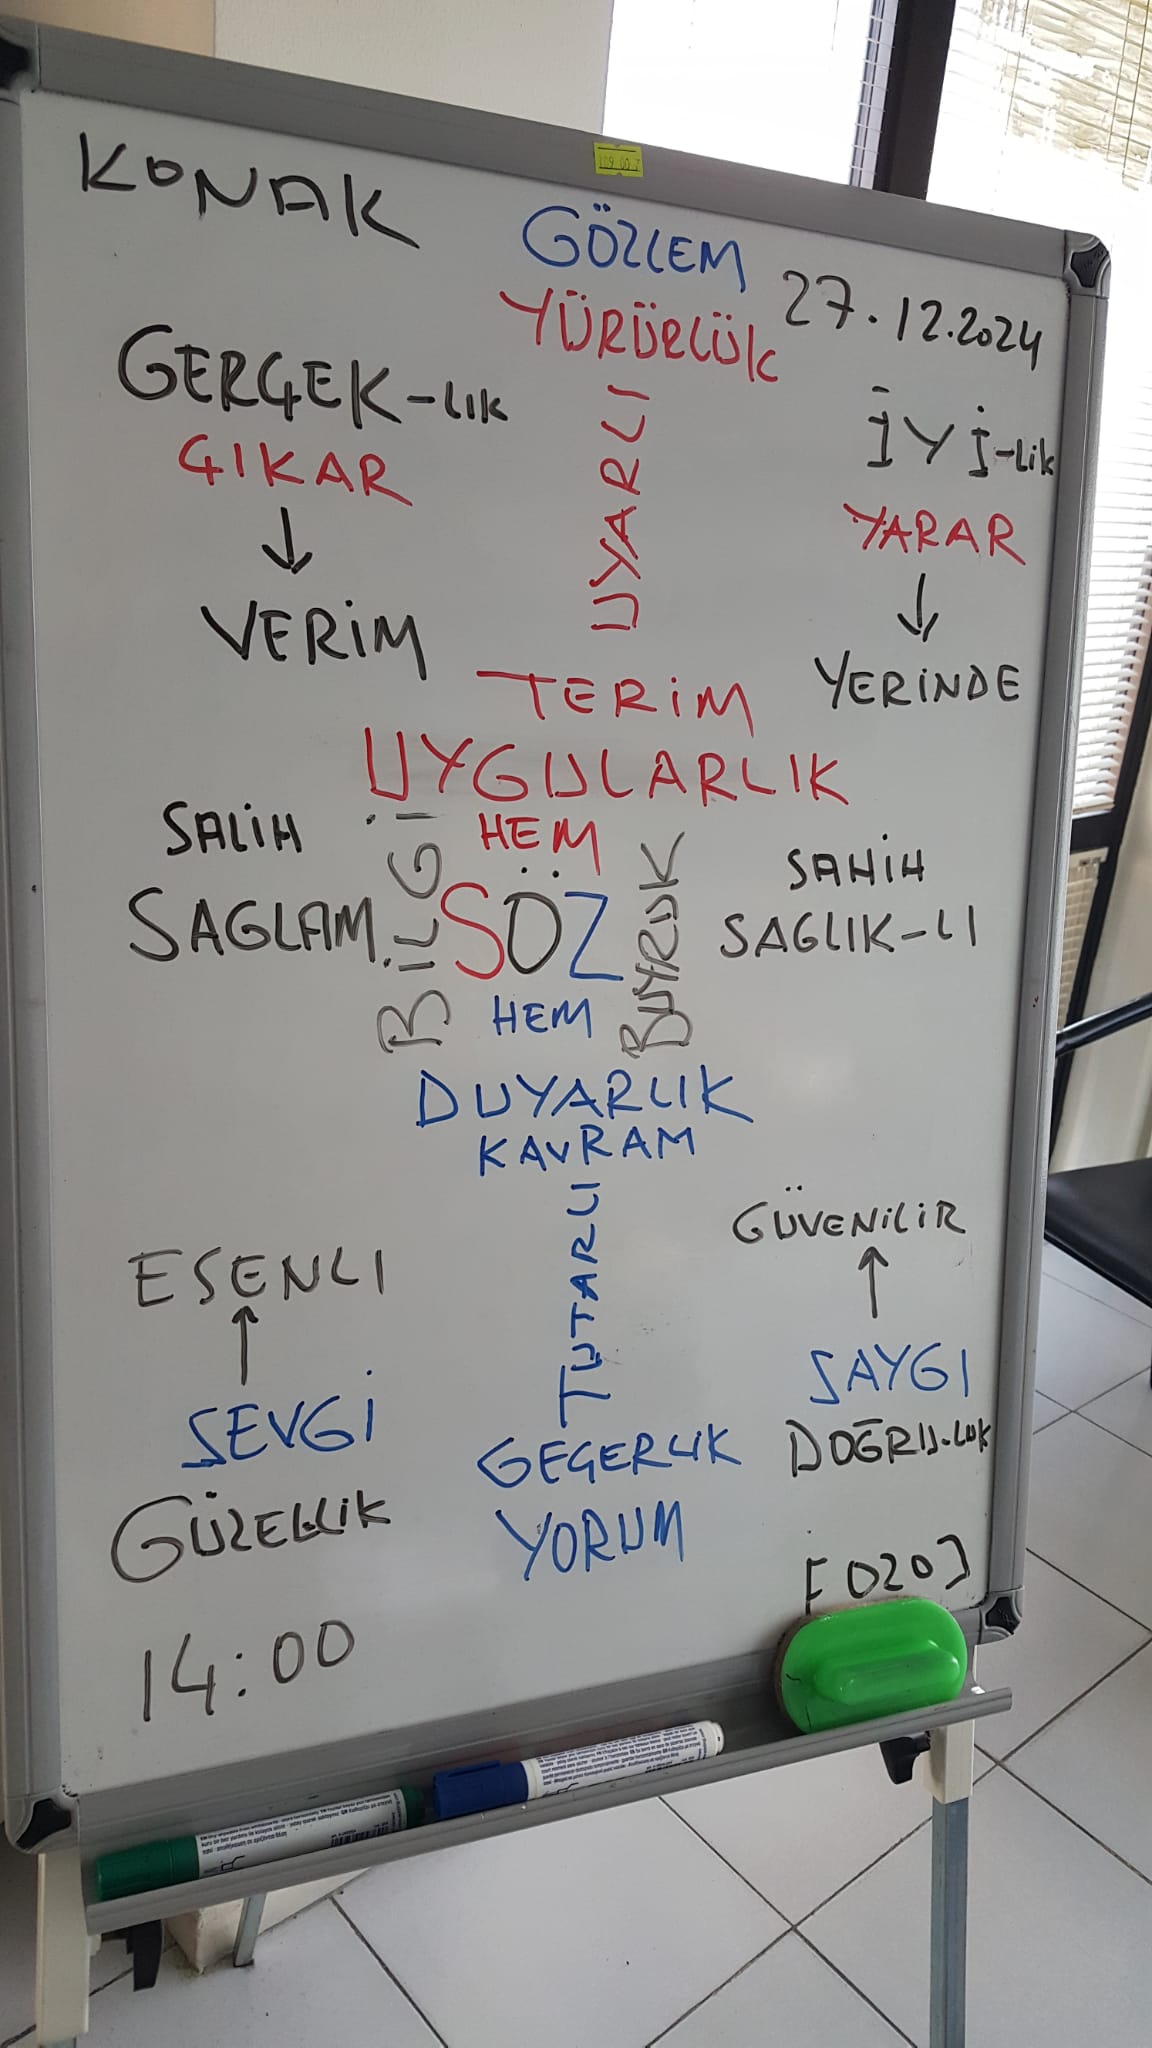 KONAK
GÖZLEM
27.12.2024
YÜRÜRLÜK
GERÇEK-LIK
İYİ-LİK
ÇIKAR
UYARLI
YARAR
↓
↓
VERİM
YERİNDE
TERİM
UYGULARLIK
SALİH
HEM
SAHİH
SAGLAM
BİLGİ
SÖZ
BUYRUK
SAGLIK-LI
HEM
DUYARLIK
KAVRAM
ESENLI
TUTARLI
GÜVENİLİR
↑
↑
SEVGİ
SAYGI
GEÇERLIK
DOĞRU-LUK
GÜZELLİK
YORUM
[020]
14:00